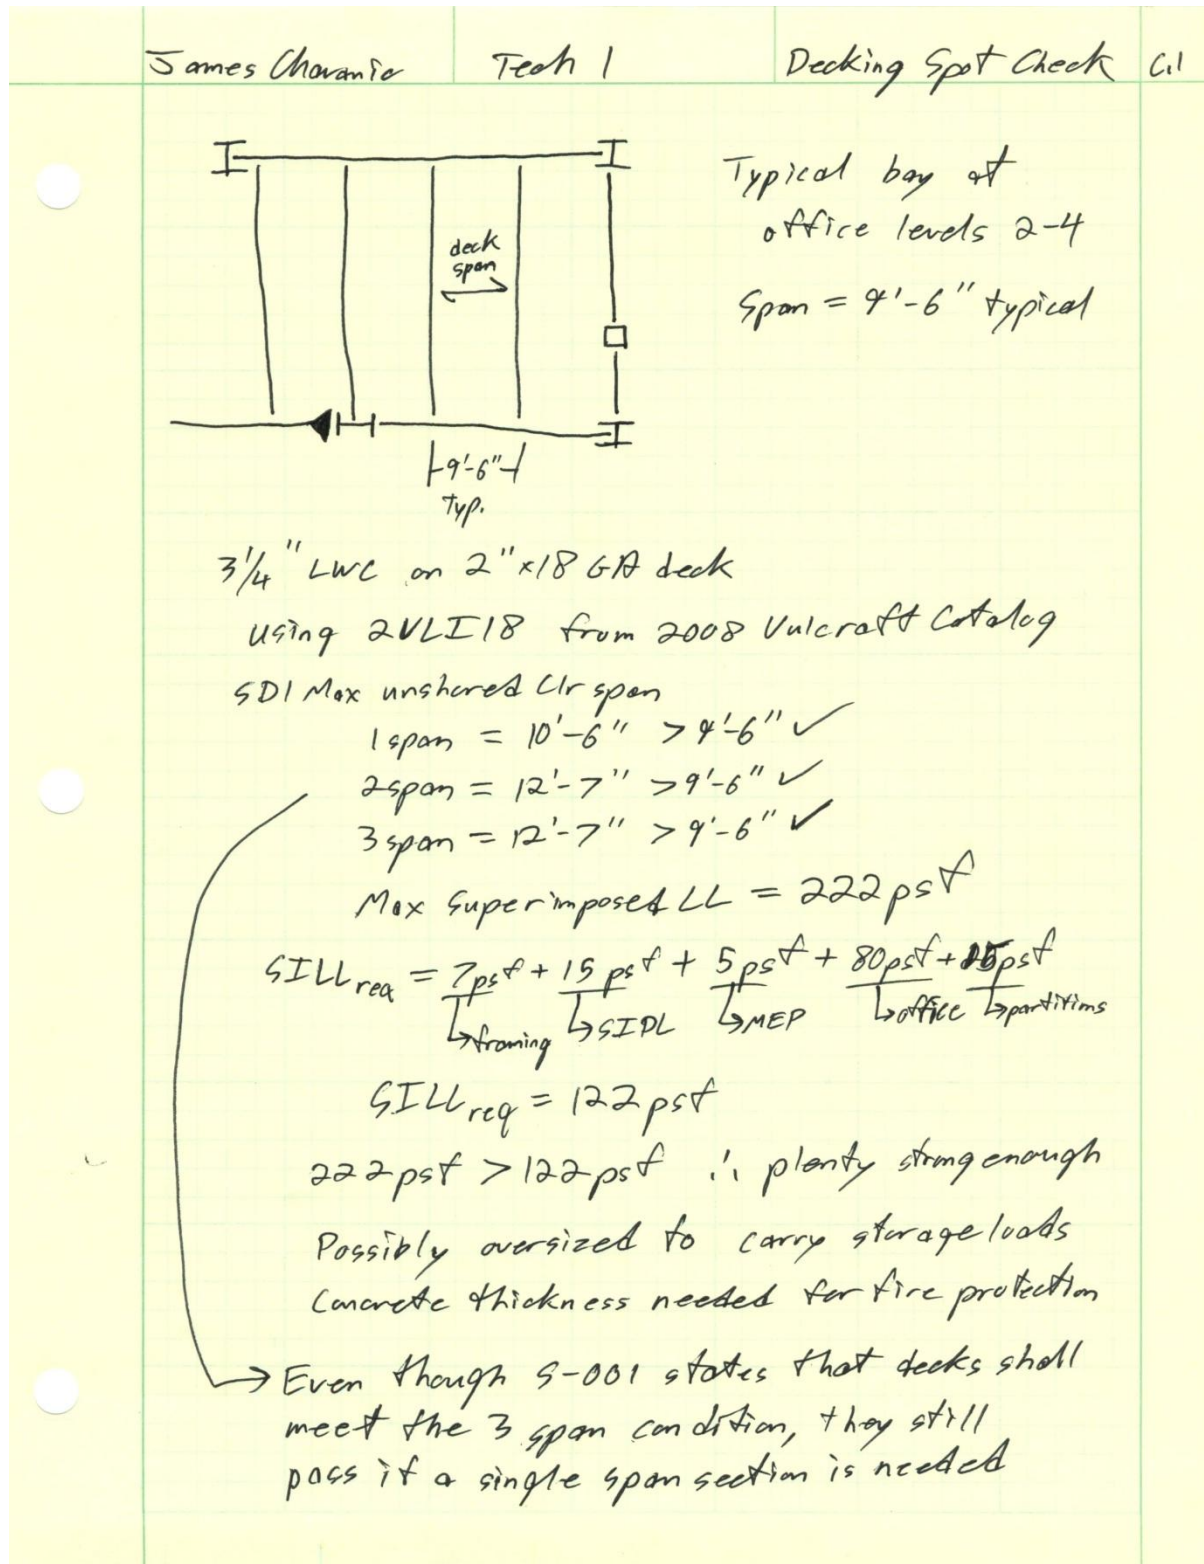 James Chavanic Tech 1 Decking Spot Check C.1
Typical bay at
office levels 2-4
Span = 9'-6" typical
deck
span
9'-6"
Typ.
3 1/4" LWC on 2"x18 GA deck
using 2VLI18 from 2008 Vulcraft Catalog
SDI Max unshored Clr span
1 span = 10'-6" > 9'-6" ✓
2 span = 12'-7" > 9'-6" ✓
3 span = 12'-7" > 9'-6" ✓
Max superimposed LL = 222 psf
SILL req = 7psf + 15 psf + 5psf + 80psf + 15psf
↳framing ↳SIDL ↳MEP ↳office ↳partitions
SILL req = 122 psf
222 psf > 122 psf ∴ plenty strong enough
Possibly oversized to carry storage loads
Concrete thickness needed for fire protection
→ Even though S-001 states that decks shall
meet the 3 span condition, they still
pass if a single span section is needed